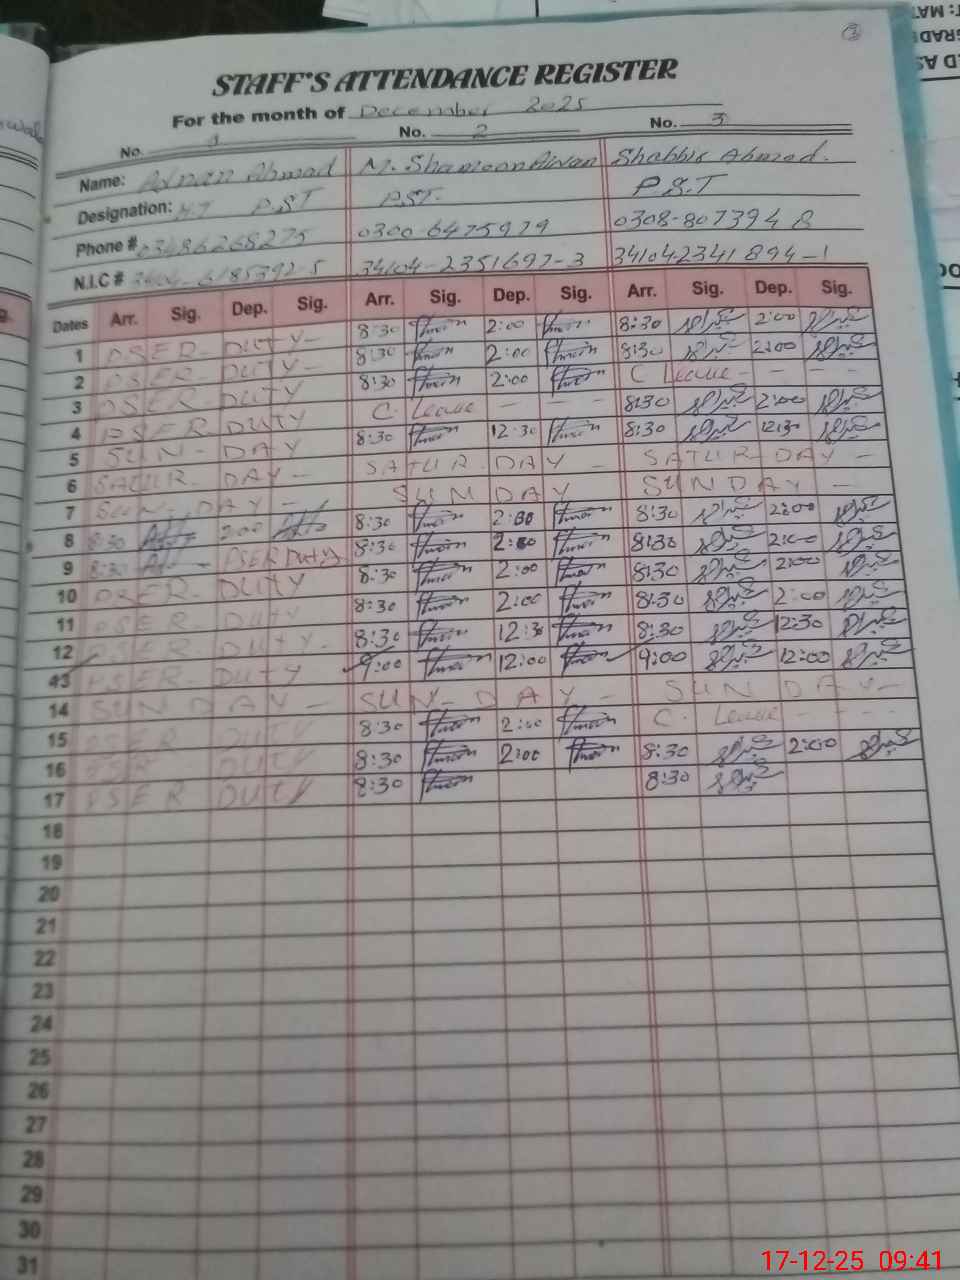 STAFF'S ATTENDANCE REGISTER
For the month of December 2025
No. 1 No. 2 No. 3
Name: Adnan Ahmad M. Shamoon Awan Shabbir Ahmad.
Designation: H.T P.ST P.ST. P.S.T
Phone # 03486268275 0300-6475979 0308-8073948
N.I.C # 34104-6185392-5 34104-2351697-3 341042341894-1
Dates Arr. Sig. Dep. Sig. Arr. Sig. Dep. Sig. Arr. Sig. Dep. Sig.
1 PSER - DUTY - 8:30 2:00 8:30 2:00
2 PSER DUTY 8:30 2:00 8:30 2:00
3 PSER DUTY 8:30 2:00 C Leave - - - -
4 PSER DUTY C. Leave - - - - 8:30 2:00
5 SUN - DAY 8:30 12:30 8:30 12:30
6 SATUR - DAY SATUR - DAY - SATUR - DAY -
7 SUN - DAY - SUNDAY SUNDAY -
8 8:30 2:00 8:30 2:00 8:30 2:00
9 8:30 - PSER DUTY 8:30 2:00 8:30 2:00
10 PSER - DUTY 8:30 2:00 8:30 2:00
11 PSER DUTY 8:30 2:00 8:30 2:00
12 PSER DUTY - 8:30 12:30 8:30 12:30
13 PSER DUTY 9:00 12:00 9:00 12:00
14 SUNDAY - SUN - DAY - SUNDAY -
15 PSER DUTY 8:30 2:00 C. Leave - - - -
16 PSER DUTY 8:30 2:00 8:30 2:00
17 PSER DUTY 8:30 8:30
18
19
20
21
22
23
24
25
26
27
28
29
30
31
17-12-25 09:41